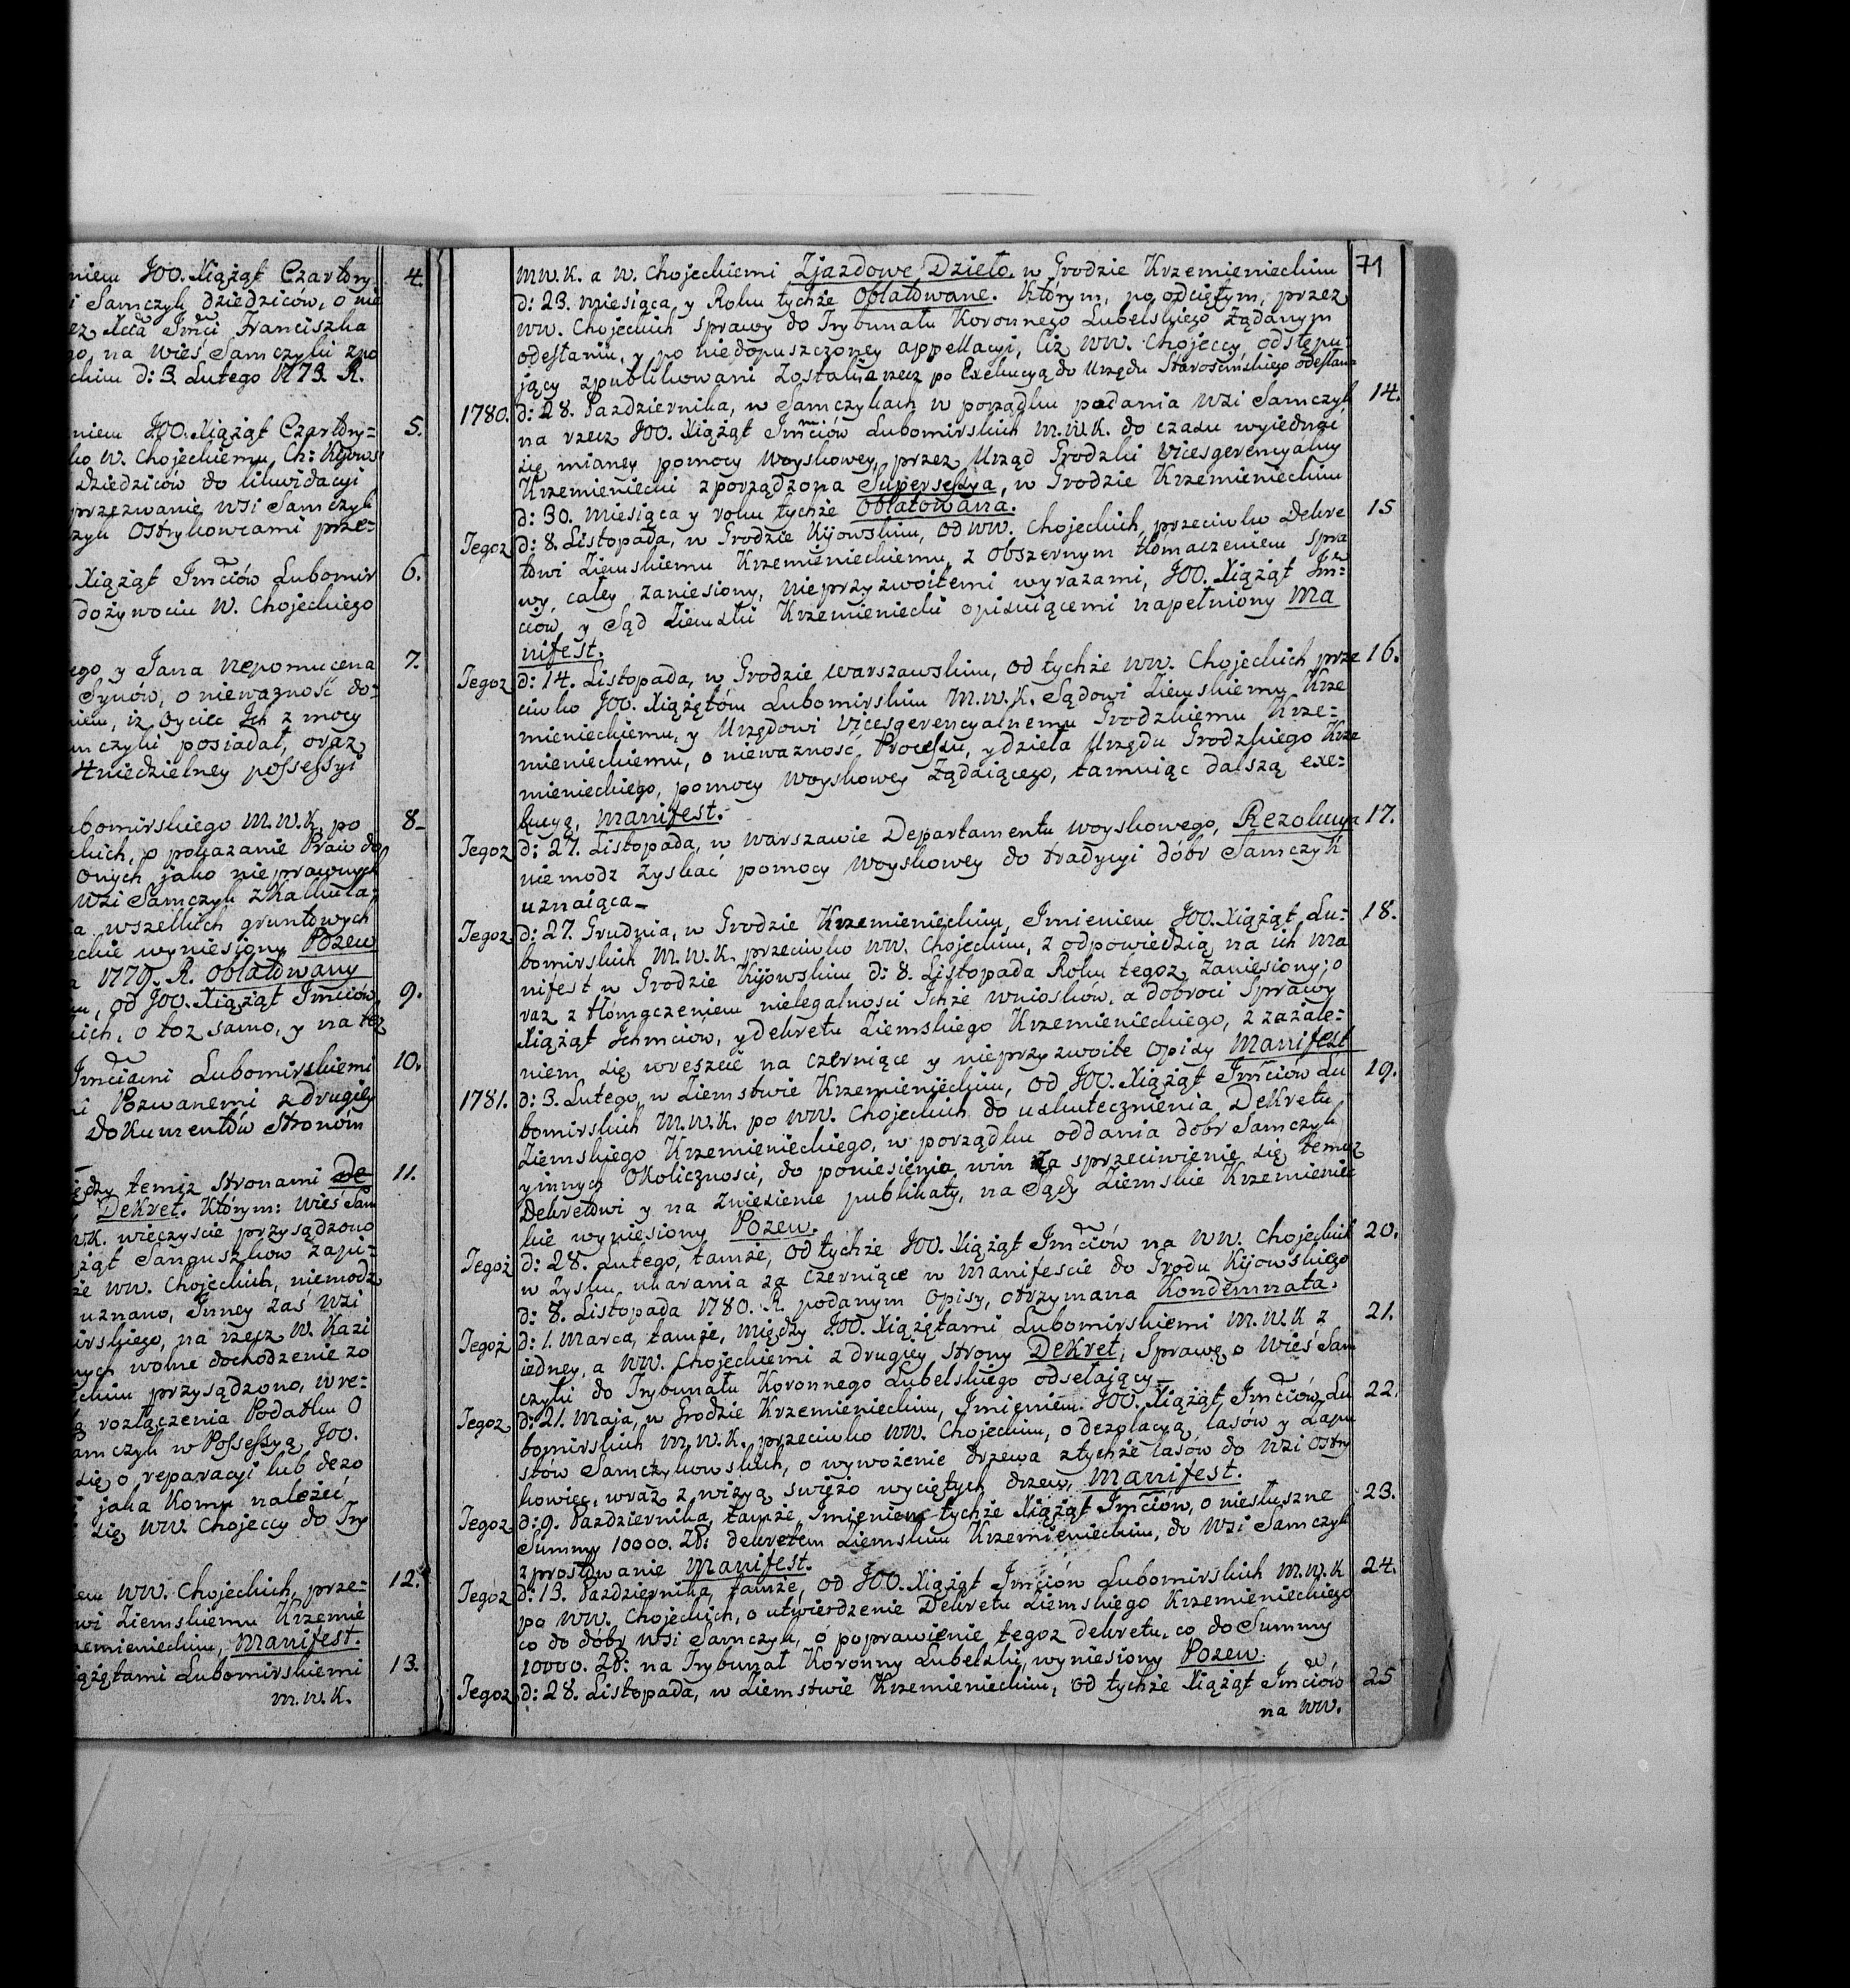 niem JOO. Xiążąt Czartory- 4.
i Samczyk dziedziców, o nie
ez Xcia Jmci Franciszka
go, na wieś Samczyki zpo
ckim d: 3. Lutego 1773. R.
niem JOO. Xiążąt Czartory= 5.
ko W. Chojeckiemu, Ch: Kijows
Dziedziców do likwidacyi
przezwanie wsi Samczyk
zyk Ostrykowcami prze=
Xiążąt Jmciów Lubomir 6.
dożywociu W. Chojeckiego
ego y Jana Nepomucena 7.
Synów, o nieważność do=
niem, iż Oyciec Ich z mocy
mczyki posiadał, oraz
4niedzielney possessyi
ubomirskiego M.W.K. po 8.
ckich, o pokazanie Praw do
onych jako nieprawnych
wsi Samczyk zkalkula=
a wszelkich gruntowych
ckie wyniesiony Pozew
a 1779. R. Oblatowany
m, od JOO. Xiążąt Jmciów 9.
kich, o toż samo, y na też
Jmciami Lubomirskiemi 10.
i Pozwanemi z drugiey
Dokumentów Stronóm
ędzy temiż Stronami De 11.
Dekret. Którym: Wieś Sam
W.K. wieczyscie przysądzono
żąt Sanguszków zapi=
że WW. Chojeckich, niemodz
uznano, Inney zaś wsi
irskiego, na rzecz W. Kazi
nych wolne dochodzenie zo
ckim przysądzono, wre=
rozłączenia Podatku O
amczyk w Possessyą JOO.
się o reparacyi lub dezo
jaka komu należeć
się WW. Chojeccy do Try
em WW. Chojeckich, prze= 12.
wi Ziemskiemu Krzemie
zemienieckim, Manifest.
iążętami Lubomirskiemi 13.
M.W.K.
71
M.W.K. a W. Chojeckiemi Zjazdowe Dzieło, w Grodzie Krzemienieckim
d: 23. miesiąca, y Roku tychże Oblatowane. Którym, po odciętym, przez
WW. Chojeckich sprawy do Trybunału Koronnego Lubelskiego żądanym
odesłaniu, y po niedopuszczoney appellacyi, Ciż WW. Chojeccy, odstępu=
jący zpublikowani zostali a rzecz po Exekucyą do Urzędu Starościńskiego odesłana
1780. d: 28. Pazdziernika, w Samczykach w porządku podania wsi Samczyk 14.
na rzecz JOO. Xiążąt Jmciów Lubomirskich M.W.K. do czasu wyiednać
się mianey pomocy Woyskowey, przez Urząd Grodzki Vicesgerencyalny
Krzemieniecki zporządzona Supersessya, w Grodzie Krzemienieckim
d: 30. miesiąca y roku tychże Oblatowana.
Tegoż d: 8. Listopada, w Grodzie Kijowskim, od WW. Chojeckich, przeciwko Dekre 15
towi Ziemskiemu Krzemienieckiemu, z obszernym tłómaczeniem spra
wy, całey zaniesiony, nieprzyzwoitemi wyrazami, JOO. Xiążąt Jm=
ciów y Sąd Ziemski Krzemieniecki opisuiącemi napełniony Ma
nifest.
Tegoż d: 14. Listopada, w Grodzie Warszawskim, od tychże WW. Chojeckich prze 16.
ciwko JOO. Xiążętóm Lubomirskim M.W.K. Sądowi Ziemskiemu Krze
mienieckiemu, y Urzędowi Vicesgerencyalnemu Grodzkiemu Krze=
mienieckiemu, o nieważność Processu, y dzieła Urzędu Grodzkiego Krze
mienieckiego, pomocy Woyskowey żądaiącego, tamuiąc dalszą exe=
kucyą, Manifest.
Tegoż d: 27. Listopada, w Warszawie Departamentu Woyskowego, Rezolucya 17.
niemodz zyskać pomocy Woyskowey do tradycyi dóbr Samczyk
uznaiąca
Tegoż d: 27. Grudnia, w Grodzie Krzemienieckim, Imieniem JOO. Xiążąt Lu= 18.
bomirskich M.W.K. przeciwko WW. Chojeckim, z odpowiedzią na ich Ma
nifest w Grodzie Kijowskim d: 8. Listopada Roku tegoż zaniesiony; o
raz z tłómaczeniem nielegalności Ichże wniosków, a dobroci Sprawy
Xiążąt Ichmciów, y dekretu Ziemskiego Krzemienieckiego, z zażale=
niem się wreszcie na czerniące y nieprzyzwoite opisy Manifest
1781. d: 3. Lutego, w Ziemstwie Krzemienieckim, od JOO. Xiążąt Jmciów Lu 19.
bomirskich M.W.K. po WW. Chojeckich do uskutecznienia Dekretu
Ziemskiego Krzemienieckiego, w porządku oddania dóbr Samczyk
y innych okoliczności, do poniesienia win za sprzeciwienie się temuż
Dekretowi y na zniesienie publikaty, na Sądy Ziemskie Krzemieniec
kie wyniesiony Pozew.
Tegoż d: 28. Lutego, tamże, od tychże JOO. Xiążąt Jmciów na WW. Chojeckich 20.
w zysku ukarania za czerniące w Manifeście do Grodu Kijowskiego
d: 8. Listopada 1780. R. podanym opisy, otrzymana Kondemnata.
Tegoż d: 1. Marca, tamże, między JOO. Xiążętami Lubomirskiemi M.W.K z 21.
iedney, a WW. Chojeckiemi z drugiey strony Dekret, Sprawę o Wieś Sam
czyki do Trybunału Koronnego Lubelskiego odsełaiący
Tegoż d: 21. Maja, w Grodzie Krzemienieckim, Imieniem JOO. Xiążąt Jmciów Lu 22.
bomirskich M.W.K. przeciwko WW. Chojeckim, o dezolacyą lasów y Zapu
stów Samczykowskich, o wywożenie drzewa z tychże lasów do wsi Ostry
kowiec, wraz z wizyą świeżo wyciętych drzew, Manifest.
Tegoż d: 9. Pazdziernika, tamże, Imieniem tychże Xiążąt Jmciów, o niesłuszne 23.
Summy 10000. Zł: dekretem Ziemskim Krzemienieckim, do wsi Samczyk
zprostowanie Manifest.
Tegoż d: 13. Pazdziernika, tamże, od JOO. Xiążąt Jmciów Lubomirskich M.W.K 24.
po WW. Chojeckich, o utwierdzenie Dekretu Ziemskiego Krzemienieckiego
co do dóbr wsi Samczyk, o poprawienie tegoż dekretu, co do Summy
10000. Zł: na Trybunał Koronny Lubelski, wyniesiony Pozew.
Tegoż d: 28. Listopada, w Ziemstwie Krzemienieckim, od tychże Xiążąt Jmciów 25
na WW.